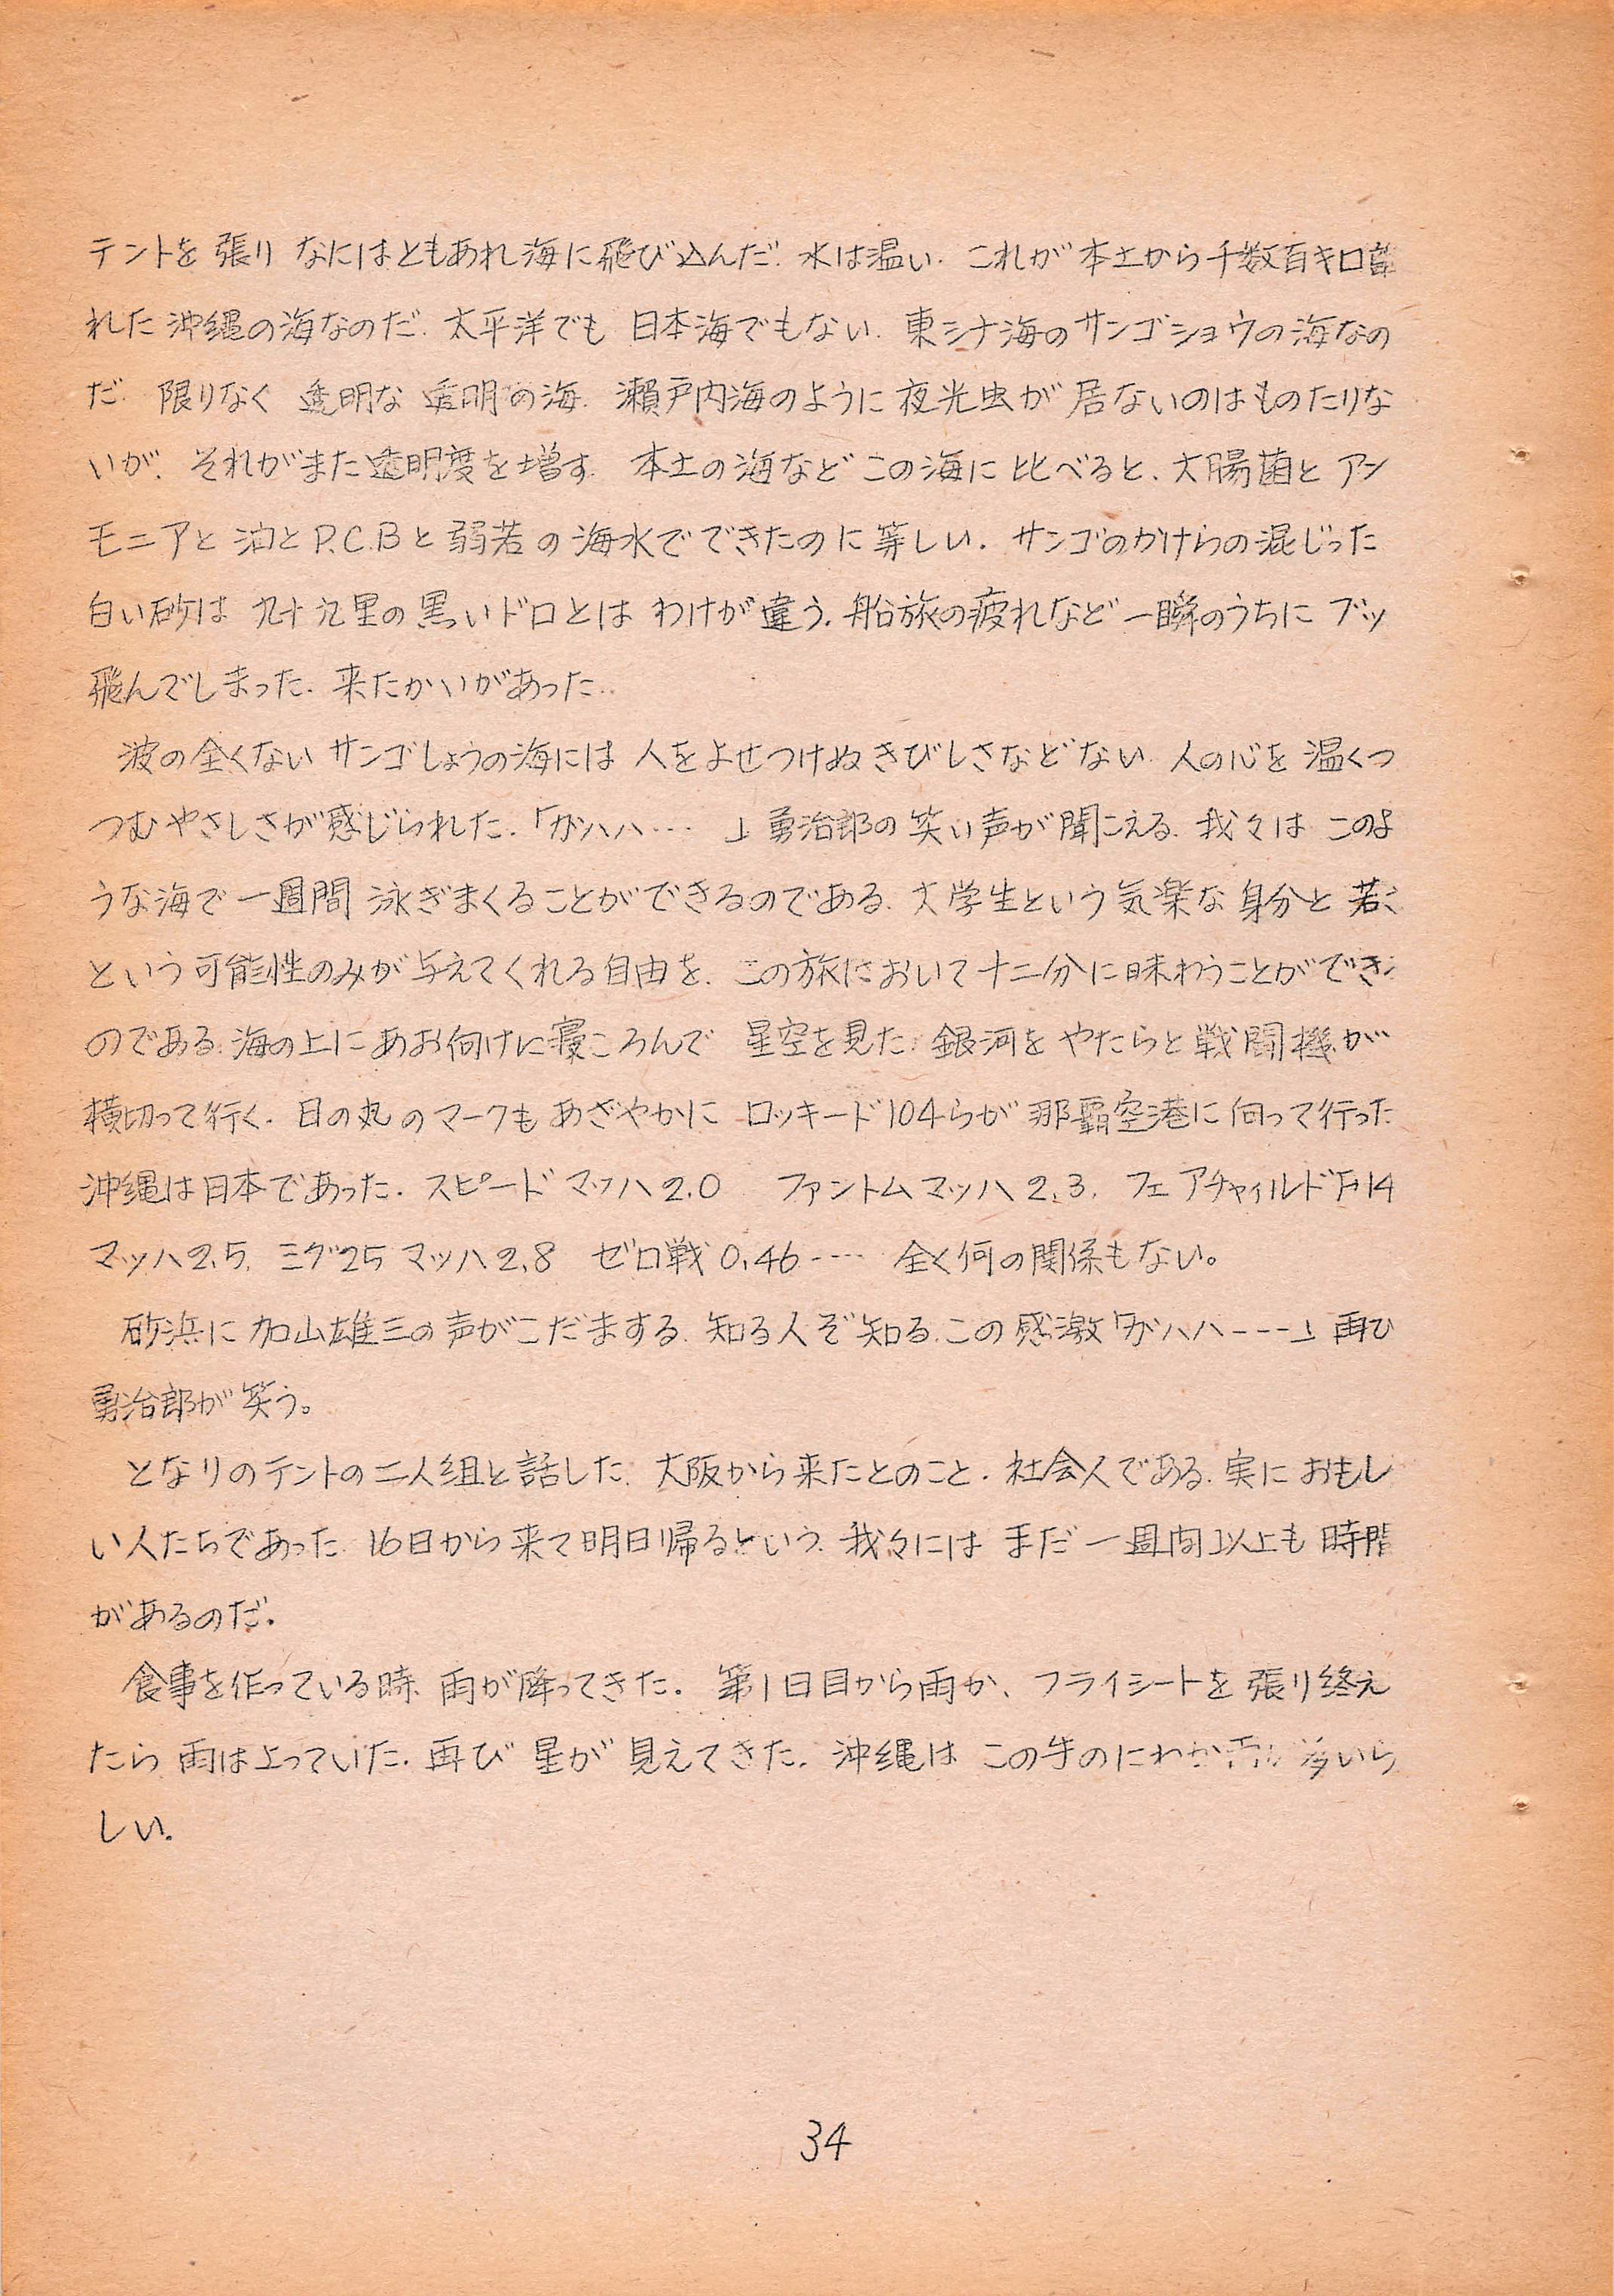 テントを張り なにはともあれ海に飛び込んだ. 水は温い. これが本土から千数百キロ離
れた沖縄の海なのだ. 太平洋でも 日本海でもない. 東シナ海のサンゴショウの海なの
だ. 限りなく 透明な 透明の海. 瀬戸内海のように夜光虫が 居ないのはものたりな
いが、それがまた透明度を増す. 本土の海など この海に比べると、大腸菌と アン
モニアと 油と P.C.Bと 弱若の海水でできたのに等しい. サンゴのかけらの混じった
白い砂は 九十九里の黒いドロとは わけが違う. 船旅の疲れなど一瞬のうちに ブッ
飛んでしまった. 来たかいがあった..
波の全くない サンゴしょうの海には 人をよせつけぬ きびしさなどない. 人の心を 温くつ
つむ やさしさが感じられた.「ガハハ… 」勇治郎の笑い声が聞こえる. 我々は このよ
うな海で 一週間 泳ぎまくることができるのである. 大学生という 気楽な 身分と 若さ
という 可能性のみが 与えてくれる自由を、この旅において十二分に味わうことができ
のである. 海の上にあお向けに寝ころんで 星空を見た. 銀河を やたらと 戦闘機が
横切って行く. 日の丸のマークも あざやかに ロッキード104らが 那覇空港に向って行った
沖縄は日本であった. スピード マッハ2.0 ファントムマッハ2.3, フェアチャイルドF14
マッハ2.5, ミグ25 マッハ2.8 ゼロ戦0.46…… 全く何の関係もない。
砂浜に 加山雄三の声がこだまする. 知る人ぞ知る.この感激「ガハハ---」再び
勇治郎が笑う。
となりのテントの二人組と話した. 大阪から来たとのこと. 社会人である. 実におもし
い人たちであった. 16日から来て明日帰るという. 我々には まだ 一週間以上も 時間
があるのだ.
食事を作っている時、雨が降ってきた. 第1日目から雨か、フライシートを張り終え
たら 雨は上っていた. 再び 星が 見えてきた. 沖縄は この手のにわか雨が多いら
しい.
34